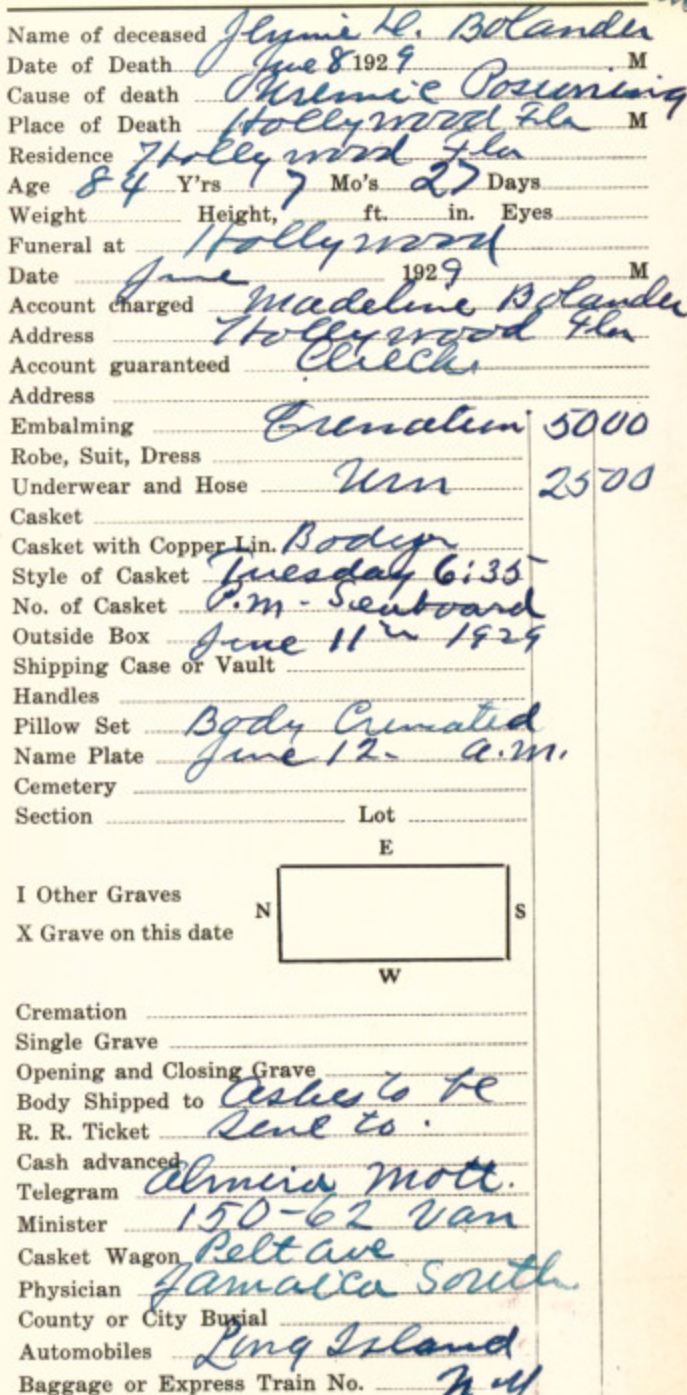 Name of deceased Jlynnie H. Bolander
Date of Death June 8 1929 M
Cause of death Uremic Posioning
Place of Death Hollywood Fla M
Residence Hollywood Fla
Age 84 Y'rs 7 Mo's 27 Days
Weight Height, ft. in. Eyes
Funeral at Hollywood
Date June 1929 M
Account charged Madeline Bolander
Address Hollywood Fla
Account guaranteed Check
Address
Embalming Cremation 50 00
Robe, Suit, Dress
Underwear and Hose Urn 25 00
Casket
Casket with Copper Lin. Body
Style of Casket Tuesday 6:35
No. of Casket P.m - Seaboard
Outside Box June 11th 1929
Shipping Case or Vault
Handles
Pillow Set Body Cremated
Name Plate June 12 - a.m.
Cemetery
Section Lot
E
I Other Graves
N S
X Grave on this date
W
Cremation
Single Grave
Opening and Closing Grave
Body Shipped to Ashes to be
R. R. Ticket sent to.
Cash advanced
Telegram Almeria Mott.
Minister 150-62 Van
Casket Wagon Pelt ave
Physician Jamaica South
County or City Burial
Automobiles Long Island
Baggage or Express Train No. N.Y.